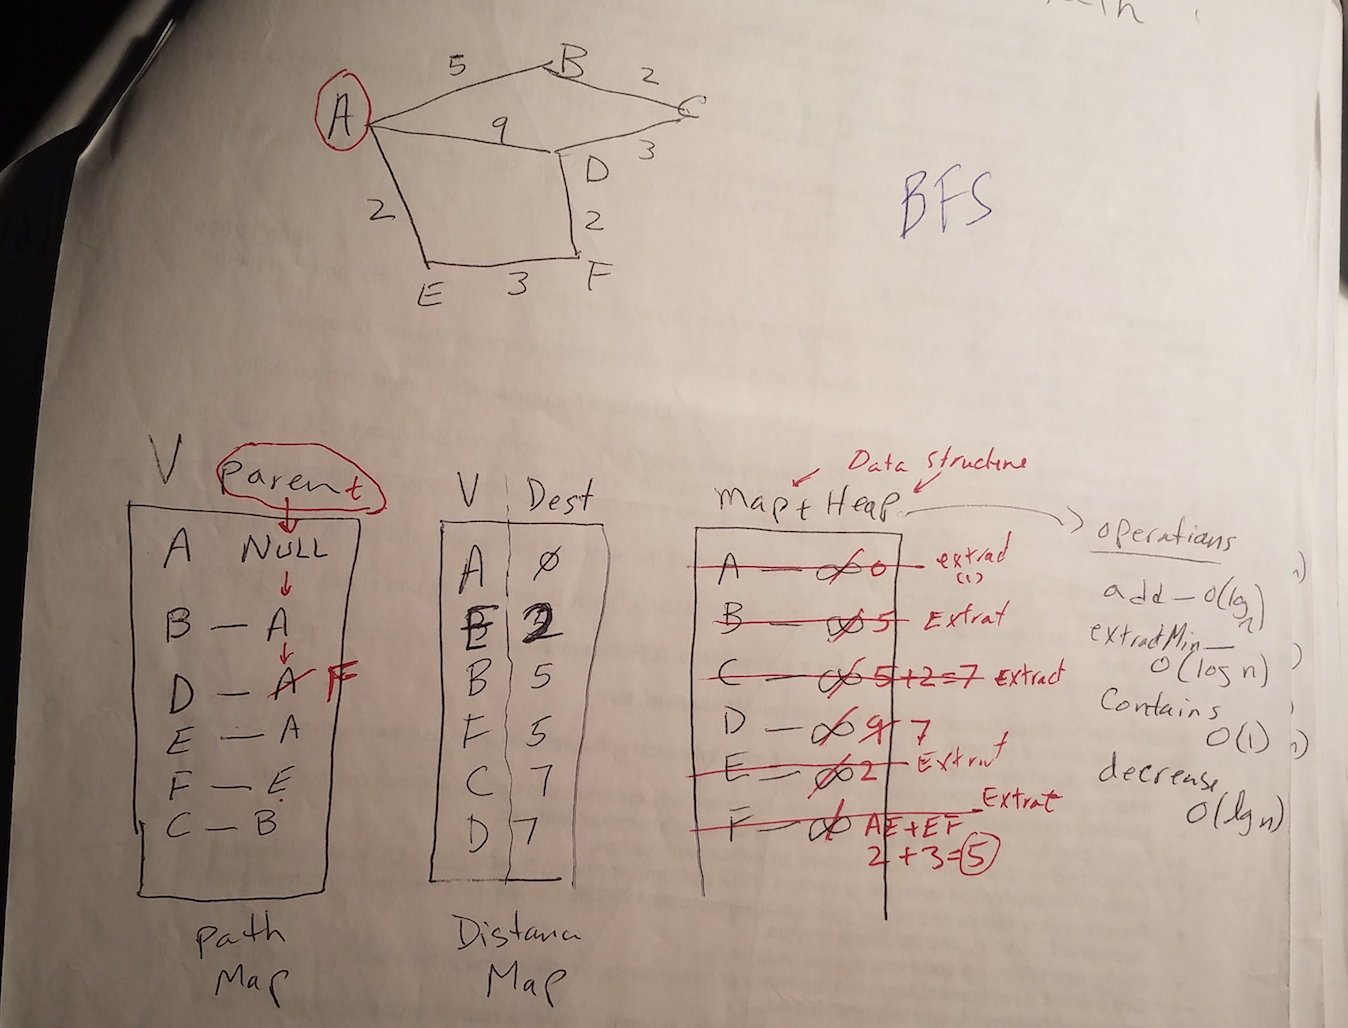 5
B
2
A
9
C
3
D
2
2
BFS
E
3
F
V Parent
A NULL
B — A
D — A F
E — A
F — E
C — B
Path
Map
V Dest
A 0
E 2
B 5
F 5
C 7
D 7
Distana
Map
Data Structure
Map + Heap
A — ∞ 0 extrad
(1)
B — ∞ 5 Extrat
C — ∞ 5+2=7 Extract
D — ∞ 9 7
E — ∞ 2 Extrat
F — ∞ AE+EF Extrat
2+3=5
operations
add — O(log n)
extractMin —
O(log n)
Contains
O(1)
decrease
O(lg n)